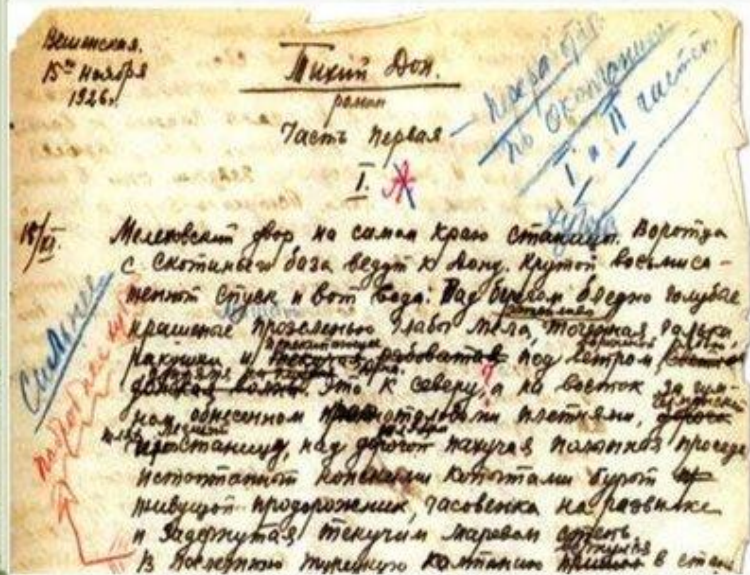 Вешенская.
15го ноября
1926г.
Тихий Дон.
роман
Часть первая
по окончании
I и II части.
I.
хутора
15/XI
Мелеховский двор на самом краю станицы. Воротца
с скотиньего база ведут к Дону. Крутой восьмиса-
женный спуск и вот вода: Над берегом бледно голубые
крашеные прозеленью глыбы мела,
ракушки и под ветром
Это к северу, а на восток за гум-
ном обнесенном плетнями,
станицу, над пахучая полынная проседь
истоптанный конскими копытами бурый
живущой придорожник, часовенка на развилке
и задернутая текучим маревом степь
В последнюю турецкую кампанию в стан
Сильнее
подробнее